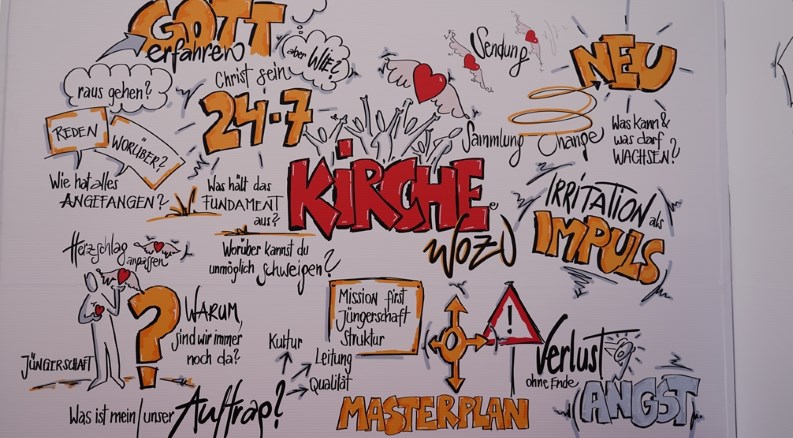 GOTT
erfahren
aber WIE?
Sendung
NEU
raus gehen?
Christ sein
24-7
REDEN
WORÜBER?
Sammlung
Change
Was kann &
was darf
WACHSEN?
Wie hat alles
ANGEFANGEN?
Was hält das
FUNDAMENT
aus?
KiRCHE
WOZU
IRRITATION als
IMPULS
Herzschlag
anpassen
Worüber kannst du
unmöglich schweigen?
WARUM,
sind wir immer
noch da?
Mission first
Jüngerschaft
Struktur
!
Verlust
ohne Ende
ANGST
JÜNGERSCHAFT
?
Kultur
Leitung
Qualität
Was ist mein/unser
Auftrag?
MASTERPLAN